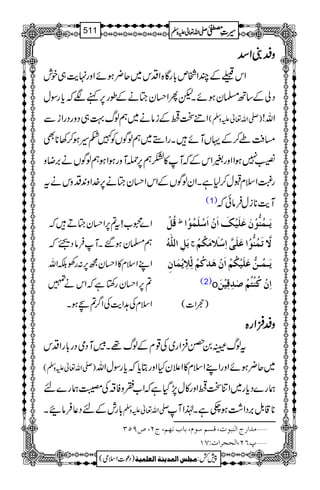 سیرتِ مصطفیٰ صلی اللہ تعالیٰ علیہ وسلم 511
وفد بنی اسد
اس قبیلے کے چند اشخاص بارگاہ اقدس میں حاضر ہوئے اور نہایت ہی خوش
دلی کے ساتھ مسلمان ہوئے۔ لیکن پھر احسان جتانے کے طور پر کہنے لگے کہ یا رسول
اللہ! (صلی اللہ تعالیٰ علیہ وسلم) اتنے سخت قحط کے زمانے میں ہم لوگ بہت ہی دور دراز سے
مسافت طے کر کے یہاں آئے ہیں۔ راستے میں ہم لوگوں کو کہیں شکم سیر ہو کر کھانا بھی
نصیب نہیں ہوا اور بغیر اس کے کہ آپ کا لشکر ہم پر حملہ آور ہوا ہو ہم لوگوں نے برضا و
رغبت اسلام قبول کر لیا ہے۔ ان لوگوں کے اس احسان جتانے پر خداوند قدوس نے یہ
آیت نازل فرمائی کہ (1)
یَمُنُّوْنَ عَلَیْکَ اَنْ اَسْلَمُوْا ؕ قُلْ
لَّا تَمُنُّوْا عَلَیَّ اِسْلَامَکُمْ ۚ بَلِ اللّٰہُ
یَمُنُّ عَلَیْکُمْ اَنْ ھَدٰکُمْ لِلْاِیْمَانِ
اِنْ کُنْتُمْ صٰدِقِیْنَ o (2)
(حجرات)
اے محبوب! یہ تم پر احسان جتاتے ہیں کہ
ہم مسلمان ہو گئے۔ آپ فرما دیجئے کہ
اپنے اسلام کا احسان مجھ پر نہ رکھو بلکہ اللہ
تم پر احسان رکھتا ہے کہ اس نے تمہیں
اسلام کی ہدایت کی اگر تم سچے ہو۔
وفد فزارہ
یہ لوگ عیینہ بن حصن فزاری کی قوم کے لوگ تھے۔ بیس آدمی دربار اقدس
میں حاضر ہوئے اور اپنے اسلام کا اعلان کیا اور بتایا کہ یا رسول اللہ (صلی اللہ تعالیٰ علیہ وسلم)
ہمارے دیار میں اتنا سخت قحط اور کال پڑ گیا ہے کہ اب فقر و فاقہ کی مصیبت ہمارے لئے
نا قابل برداشت ہو چکی ہے۔ لہٰذا آپ صلی اللہ تعالیٰ علیہ وسلم بارش کے لئے دعا فرمائیے۔
1 ۔۔۔۔۔ مدارج النبوت، قسم سوم، باب نہم، ج۲، ص۳۵۹
2 ۔۔۔۔۔ پ۲۶، الحجرات:۱۷
پیش کش: مجلس المدینۃ العلمیۃ (دعوت اسلامی)